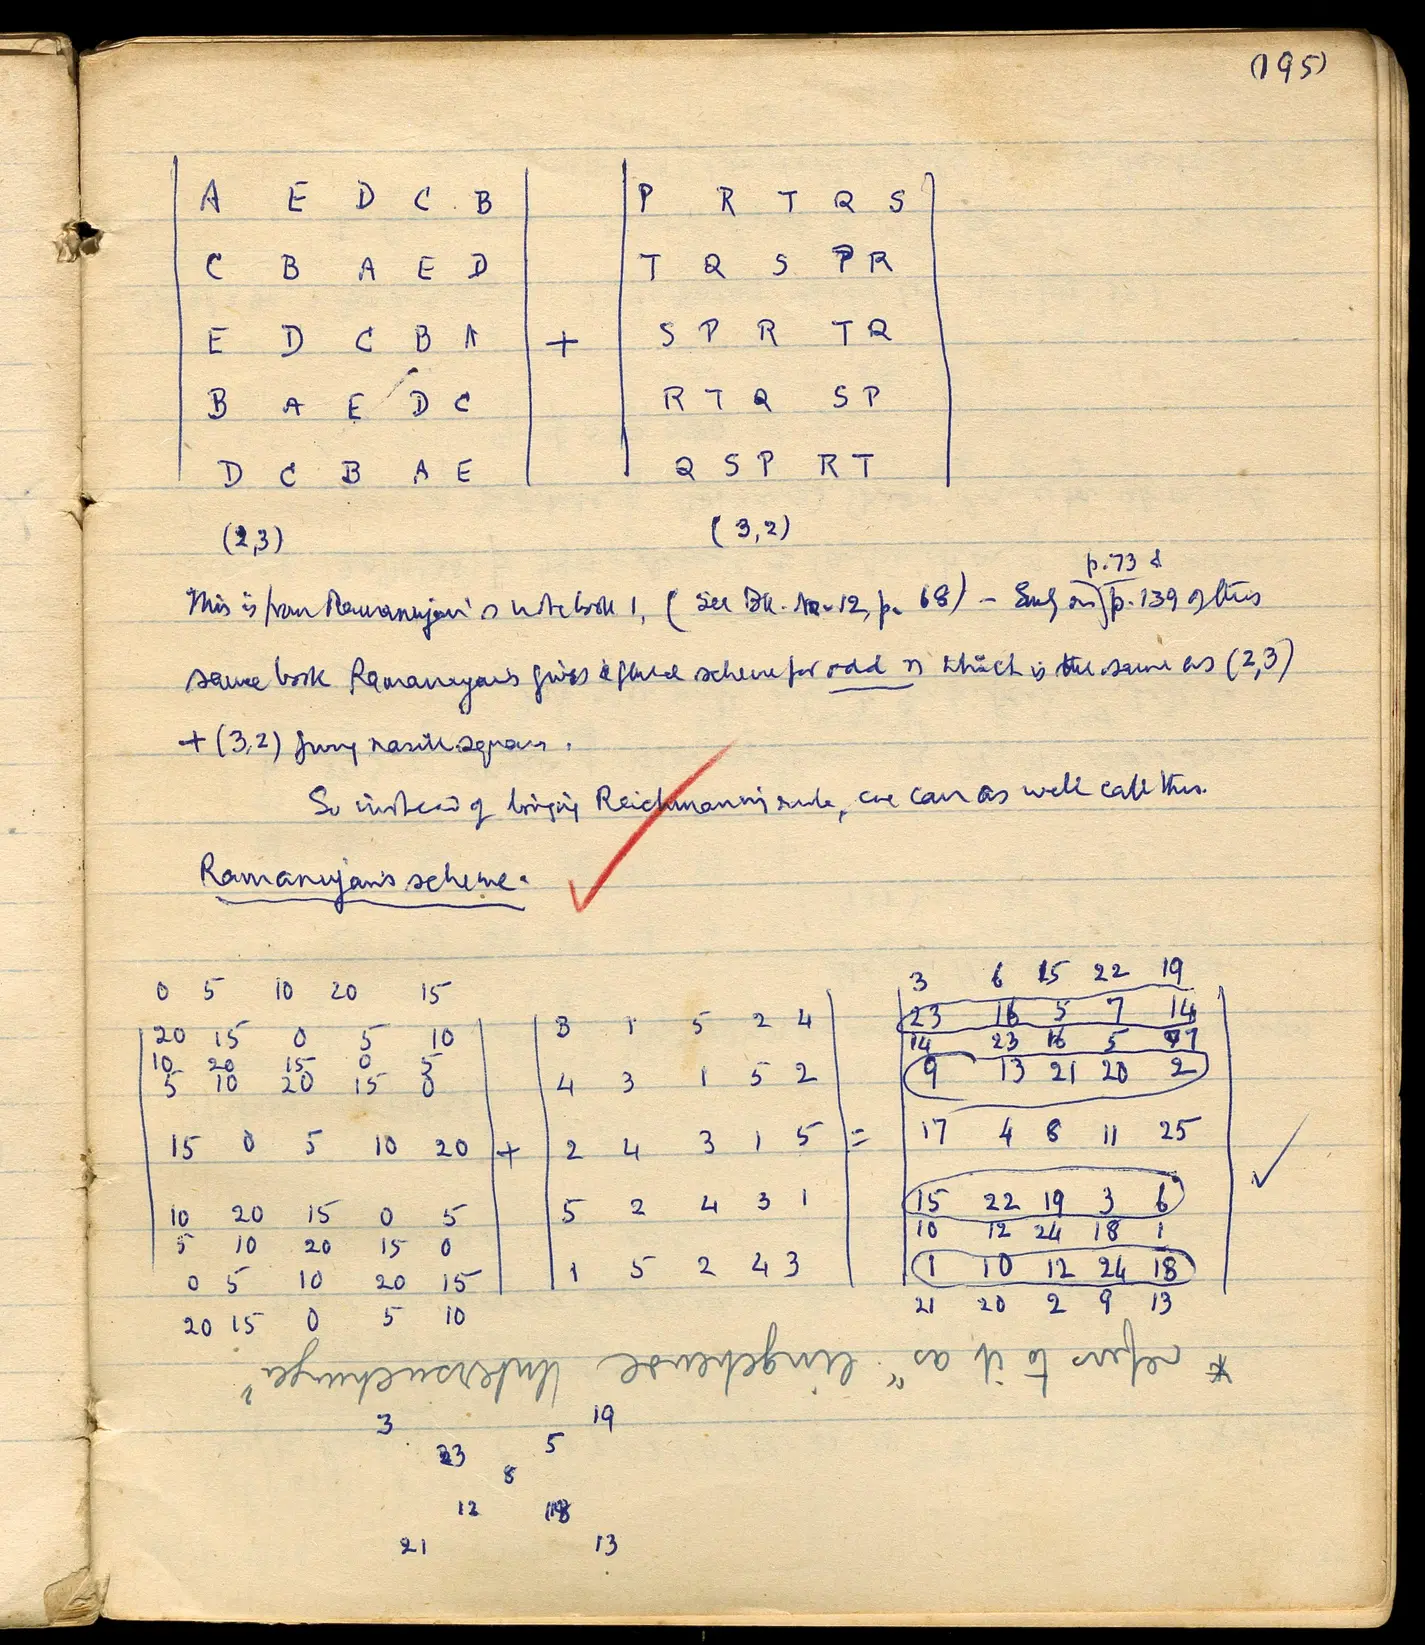 (195)
A E D C B P R T Q S
C B A E D T Q S P R
E D C B A + S P R T Q
B A E D C R T Q S P
D C B A E Q S P R T
(2,3) (3,2)
p. 73 &
This is from Ramanujan's notebook 1, (See Bk. No. 12, p. 68) – p. 139 of this
same book Ramanujan gives a scheme for odd n which is the same as (2,3)
+ (3,2) giving nasik squares.
So instead of Reichmann's rule, we can as well call this
Ramanujan's scheme.
3 6 15 22 19
0 5 10 20 15
20 15 0 5 10 3 1 5 2 4 23 16 5 7 14
14 23 16 5 7
10 20 15 0 5
5 10 20 15 0 4 3 1 5 2 9 13 21 20 2
15 0 5 10 20 + 2 4 3 1 5 = 17 4 8 11 25
10 20 15 0 5 5 2 4 3 1 15 22 19 3 6
5 10 20 15 0 10 12 24 18 1
0 5 10 20 15 1 5 2 4 3 1 10 12 24 18
20 15 0 5 10 21 20 2 9 13
* refers to it as "eingehende Untersuchunga"
3 19
23 5
8
12 18
21 13